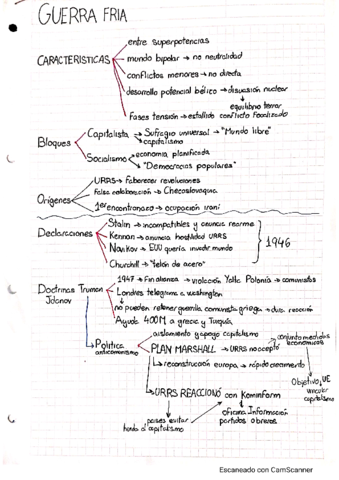 GUERRA FRIA
entre superpotencias
CARACTERISTICAS
mundo bipolar → no neutralidad
conflictos menores → no directa
desarrollo potencial bélico → disuasión nuclear
equilibrio terror
Fases tensión → estallido conflicto focalizado
Bloques
Capitalista → Sufragio universal → "Mundo libre"
→ capitalismo
Socialismo → economía planificada
→ "Democracias populares"
Orígenes
URRS → Faborecer revoluciones
Falsa colaboración → Checoslovaquia
1er encontronazo → ocupación iraní
Declaracciones
Stalin → incompatibles y anuncia rearme
Kennan → anuncia hostilidad URRS
Novikov → EUU quería invadir mundo
Churchill → "telón de acero"
1946
Doctrina Truman
Jdanov
1947 → Fin alianza → violacción Yalta Polonia → comunistas
Londres telegrama a Washington
no pueden retener guerrilla comunista griega →
Ayuda 400M a grecia y Turquía
Política
anticomunismo
aislamiento y apoyo capitalismo
PLAN MARSHALL → URRS no aceptó
conjunto medidas
económicas
reconstrucción europa → rápido crecimiento
Objetivo, UE
vincular
capitalismo
URRS REACCIONÓ con Kominform
paises evitar
hacia el capitalismo
oficina Información
partidos obreros
Escaneado con CamScanner